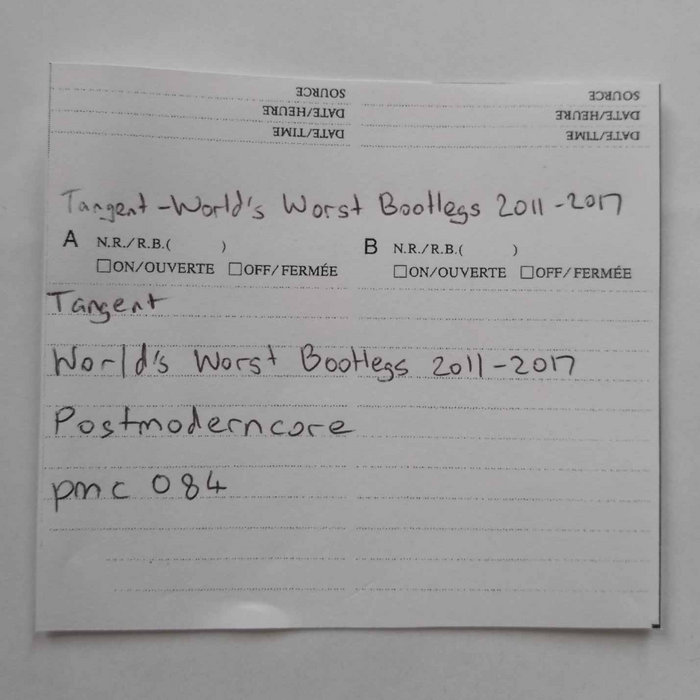 SOURCE SOURCE
DATE/HEURE DATE/HEURE
DATE/TIME DATE/TIME
Tangent - World's Worst Bootlegs 2011 - 2017
A N.R./R.B.( ) B N.R./R.B.( )
☐ON/OUVERTE ☐OFF/FERMÉE ☐ON/OUVERTE ☐OFF/FERMÉE
Tangent
World's Worst Bootlegs 2011 - 2017
Postmoderncore
pmc 084